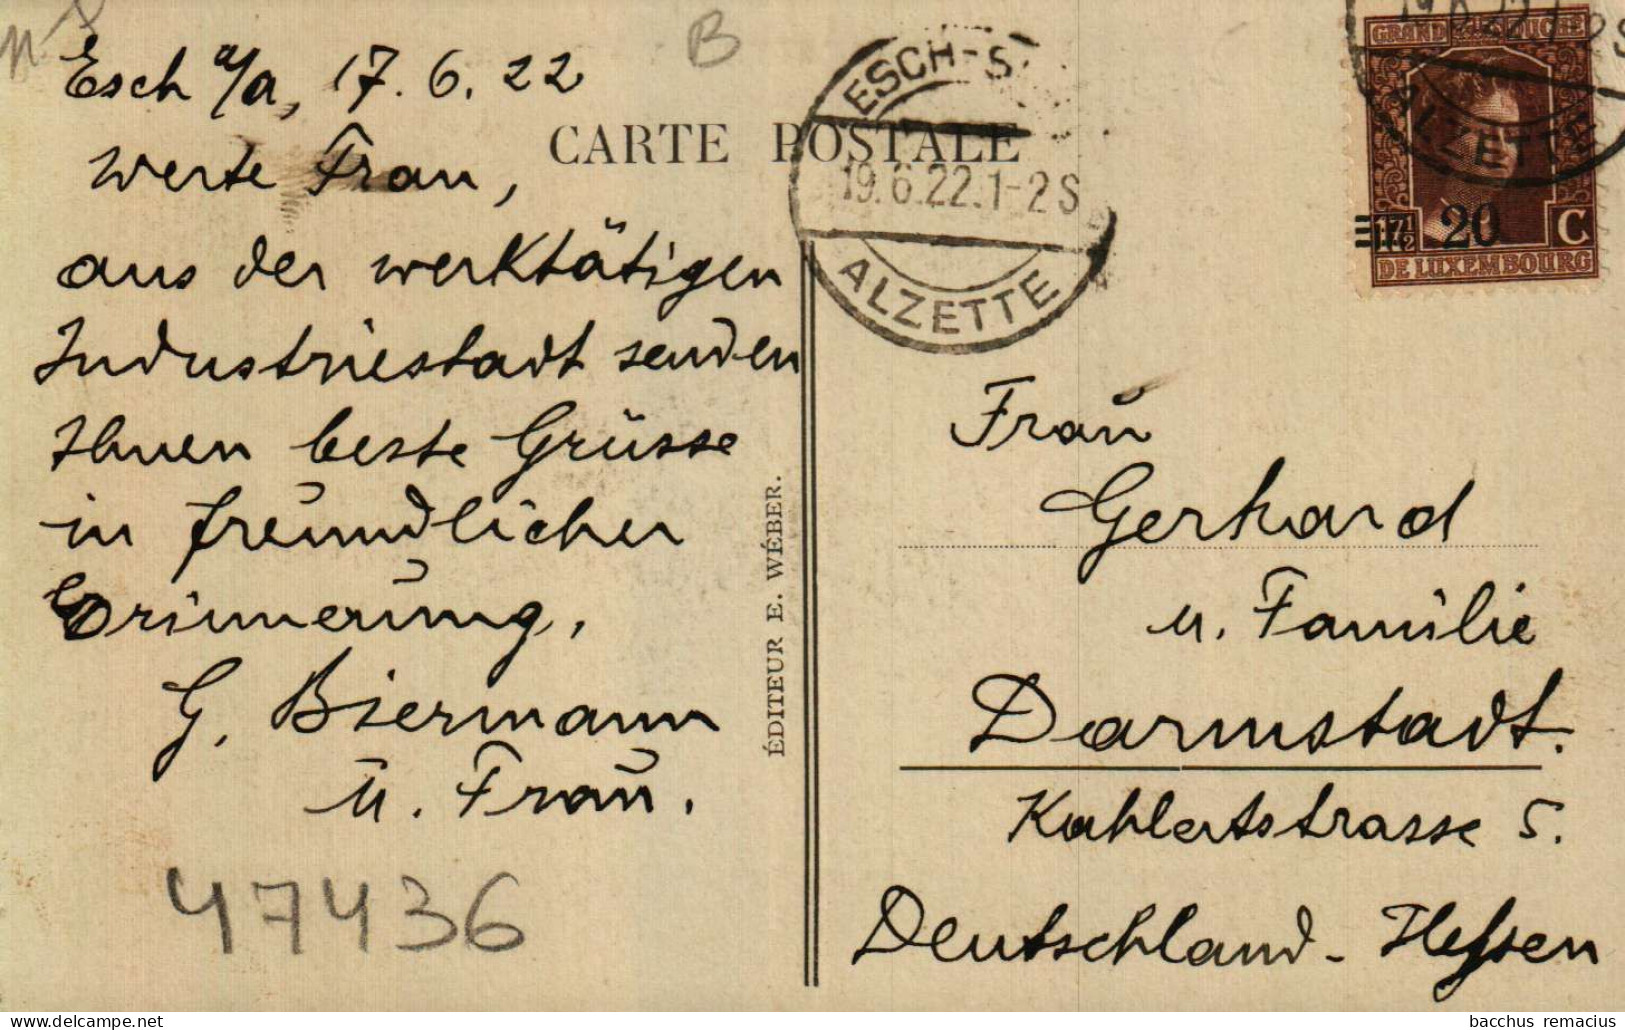 Esch a/a, 17. 6. 22
Werte Frau,
aus der werktätigen
Industriestadt senden
Ihnen beste Grüsse
in freundlicher
Erinnerung,
G. Biermann
u. Frau.
47436
B
CARTE POSTALE
ÉDITEUR E. WÉBER.
ESCH-S.
19.6.22.1-2S
ALZETTE
19.6.22.1-2S
ALZETTE
GRAND DUCHÉ
17½ 20 C
DE LUXEMBOURG
Frau
Gerhard
u. Familie
Darmstadt.
Kahlertstrasse 5.
Deutschland - Hessen
bacchus remacius